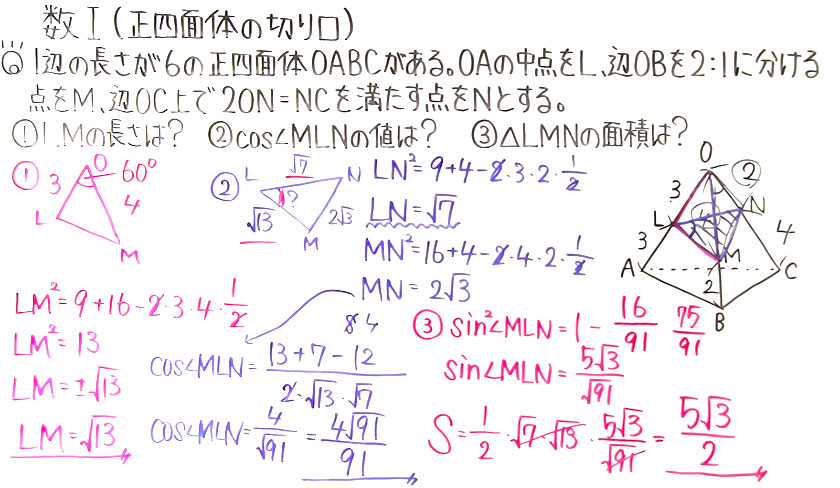 数I(正四面体の切り口)
1辺の長さが6の正四面体OABCがある。OAの中点をL、辺OBを2:1に分ける
点をM、辺OC上で2ON=NCを満たす点をNとする。
①LMの長さは? ②cos∠MLNの値は? ③△LMNの面積は?
①
O 60°
3 4
L
M
LM²=9+16-2・3・4・1/2
LM²=13
LM=±√13
LM=√13
②
L √7 N
?
√13 2√3
M
LN²=9+4-2・3・2・1/2
LN=√7
MN²=16+4-2・4・2・1/2
MN=2√3
8 4
cos∠MLN=(13+7-12)/(2・√13・√7)
cos∠MLN=4/√91=4√91/91
O
3 ②
L 4 N
3 4
A M C
2
B
③sin²∠MLN=1-16/91 75/91
sin∠MLN=5√3/√91
S=1/2・√7・√13・5√3/√91=5√3/2